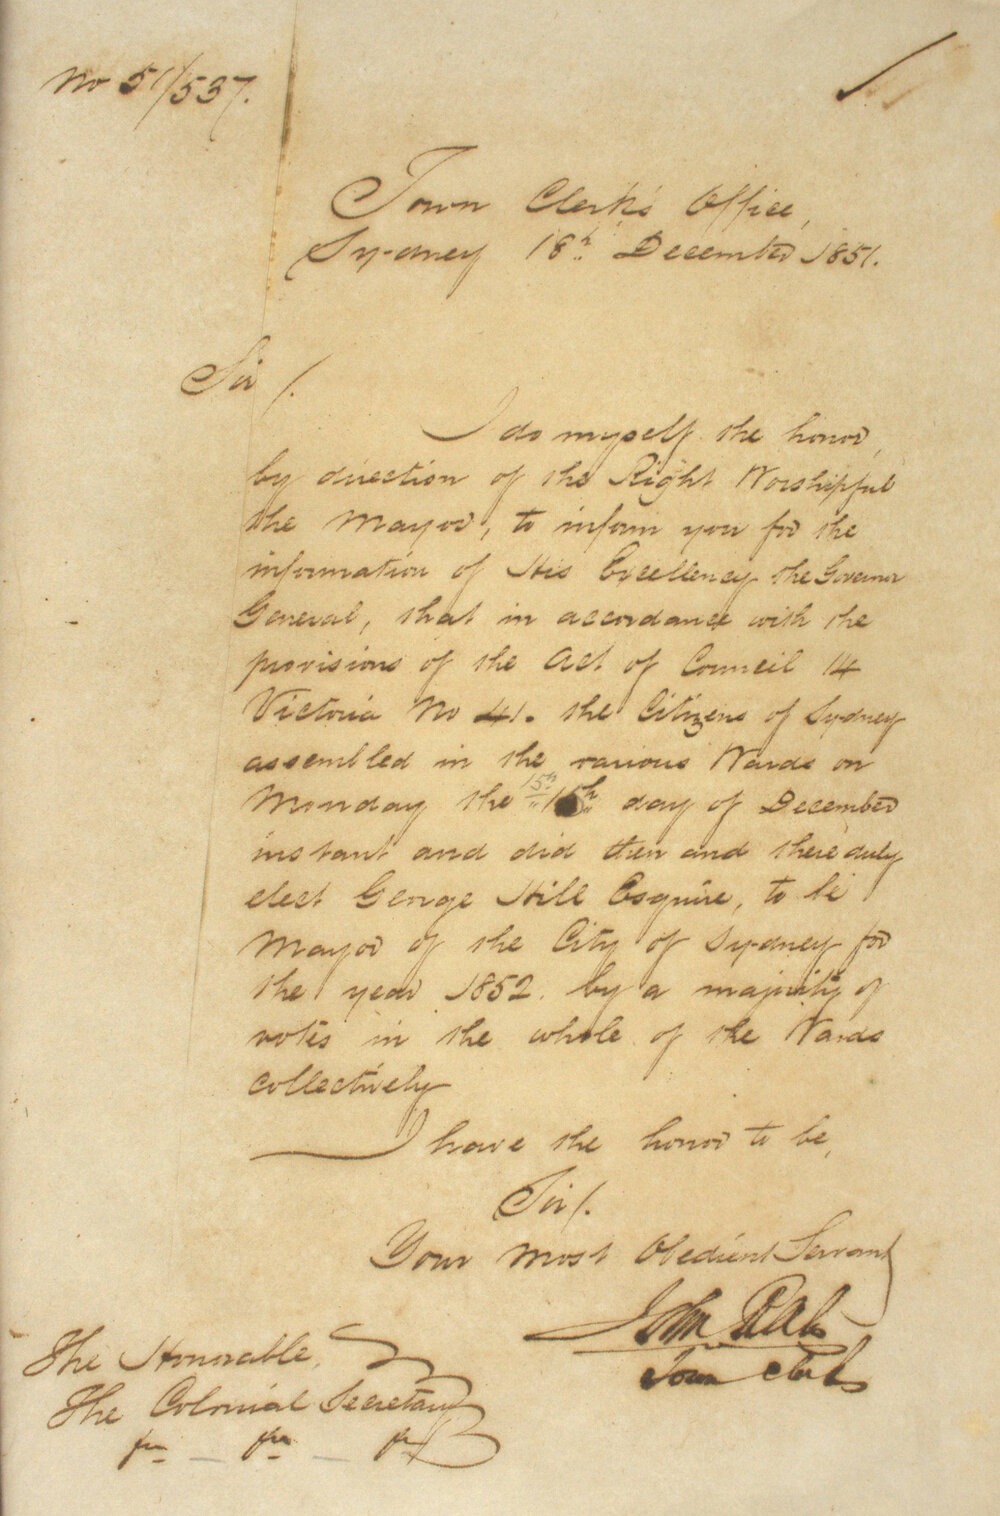 No 51/537.
Town Clerk's Office,
Sydney 18th December 1851.
Sir /.
I do myself the honor,
by direction of the Right Worshipful
the Mayor, to inform you for the
information of His Excellency the Governor
General, that in accordance with the
provisions of the Act of Council 14
Victoria No 41. the Citizens of Sydney
assembled in the various Wards on
Monday the 15th day of December
instant and did then and there duly
elect George Hill Esquire, to be
Mayor of the City of Sydney for
the year 1852. by a majority of
votes in the whole of the Wards
collectively
I have the honor to be,
Sir /.
Your Most Obedient Servant
John
Town Clerk
The Honorable,
The Colonial Secretary